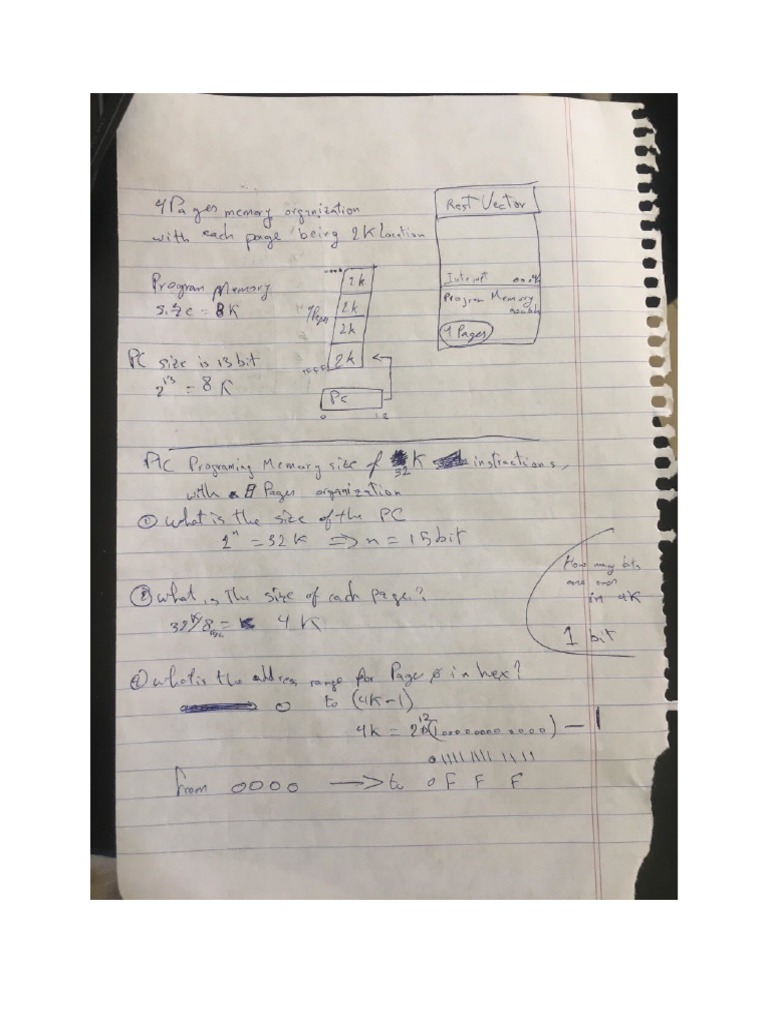 4 Pages memory organization
with each page being 2K Location
Rest Vector
Program Memory
size = 8K
4 Pages
2k
2k
2k
2k
Program Memory
4 Pages
PC size is 13 bit
2^13 = 8K
PC
0 12
PIC Programing Memory size of 32 K instractions,
with 8 Pages organization
① what is the size of the PC
2^n = 32K => n = 15 bit
How many bits
are ones
in 4K
1 bit
② what is the size of each page?
32K/8 = 4K
what is the address range for Page 0 in hex?
0 to (4K-1)
4k = 2^12 (1000000000000) - 1
0 1111 1111 1111
from 0000 → to 0 F F F